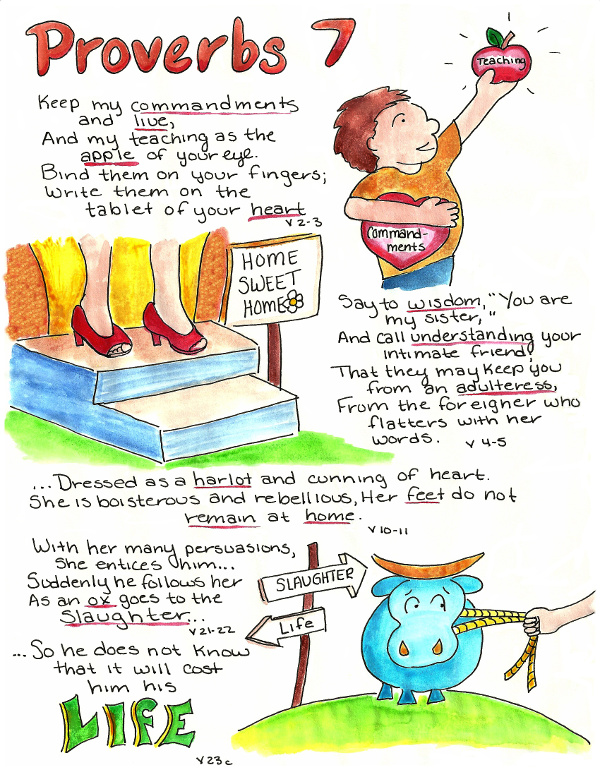 Proverbs 7
Teaching
Keep my commandments
and live,
And my teaching as the
apple of your eye.
Bind them on your fingers;
Write them on the
tablet of your heart
v 2-3
Command-
ments
HOME
SWEET
HOME
Say to wisdom, "You are
my sister,"
And call understanding your
intimate friend;
That they may keep you
from an adulteress,
From the foreigner who
flatters with her
words. v 4-5
...Dressed as a harlot and cunning of heart.
She is boisterous and rebellious, Her feet do not
remain at home.
v 10-11
With her many persuasions,
She entices him...
Suddenly he follows her
As an ox goes to the
Slaughter...
v 21-22
SLAUGHTER
Life
...So he does not know
that it will cost
him his
LIFE
v 23c